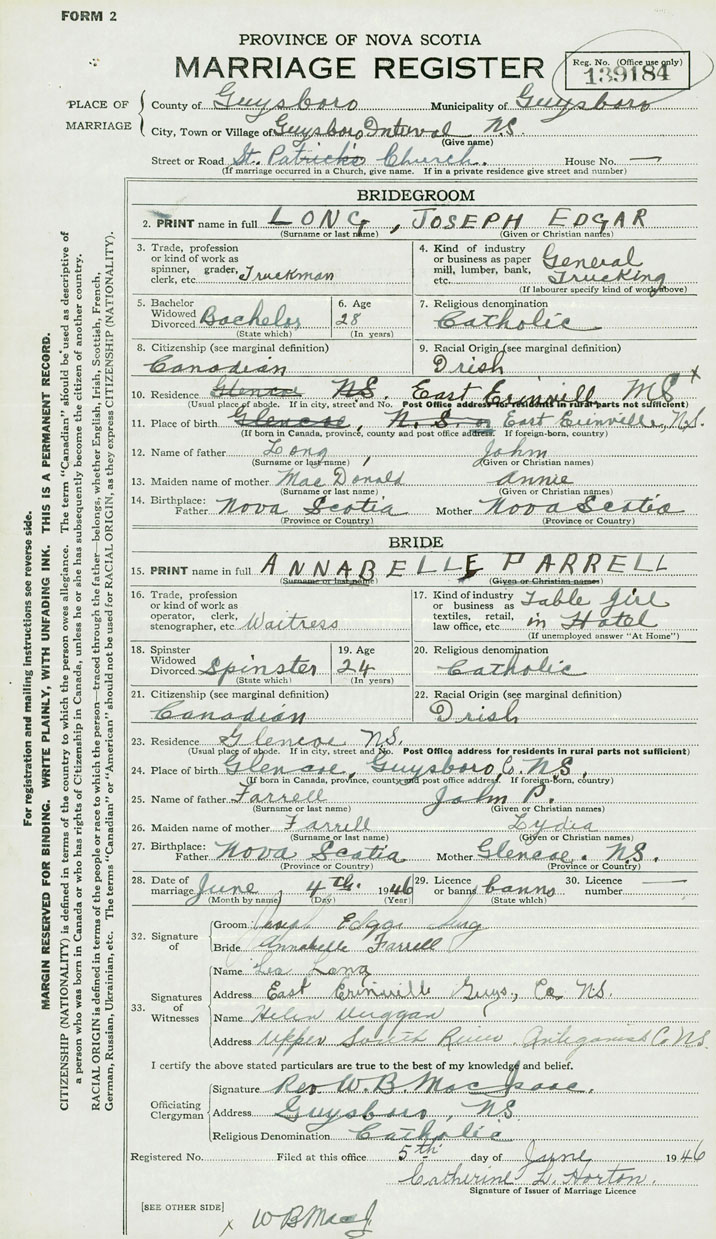 FORM 2
PROVINCE OF NOVA SCOTIA
MARRIAGE REGISTER
Reg. No. (Office use only)
139184
PLACE OF MARRIAGE
County of Guysboro Municipality of Guysboro
City, Town or Village of Guysboro Interval N.S.
(Give name)
Street or Road St. Patrick's Church. House No. —
(If marriage occurred in a Church, give name. If in a private residence give street and number)
BRIDEGROOM
2. PRINT name in full LONG, JOSEPH EDGAR
(Surname or last name) (Given or Christian names)
3. Trade, profession or kind of work as spinner, grader, clerk, etc. Truckman
4. Kind of industry or business as paper mill, lumber, bank, etc. General Trucking
(If labourer specify kind of work above)
5. Bachelor Widowed Divorced Bachelor
(State which)
6. Age 28
(In years)
7. Religious denomination Catholic
8. Citizenship (see marginal definition) Canadian
9. Racial Origin (see marginal definition) Irish
10. Residence Glencoe N.S. East Erinville NS x
(Usual place of abode. If in city, street and No. Post Office address for residents in rural parts not sufficient)
11. Place of birth Glencoe, N.S. or East Erinville, N.S.
(If born in Canada, province, county and post office address. If foreign-born, country)
12. Name of father Long, John
(Surname or last name) (Given or Christian names)
13. Maiden name of mother MacDonald Annie
(Surname or last name) (Given or Christian names)
14. Birthplace: Father Nova Scotia Mother Nova Scotia
(Province or Country) (Province or Country)
BRIDE
15. PRINT name in full ANNABELLE FARRELL
(Surname or last name) (Given or Christian names)
16. Trade, profession or kind of work as operator, clerk, stenographer, etc. Waitress
17. Kind of industry or business as textiles, retail, law office, etc. Table girl in Hotel
(If unemployed answer "At Home")
18. Spinster Widowed Divorced Spinster
(State which)
19. Age 24
(In years)
20. Religious denomination Catholic
21. Citizenship (see marginal definition) Canadian
22. Racial Origin (see marginal definition) Irish
23. Residence Glencoe N.S.
(Usual place of abode. If in city, street and No. Post Office address for residents in rural parts not sufficient)
24. Place of birth Glencoe, Guysboro, Co. N.S.
(If born in Canada, province, county and post office address. If foreign-born, country)
25. Name of father Farrell John P.
(Surname or last name) (Given or Christian names)
26. Maiden name of mother Farrell Lydia
(Surname or last name) (Given or Christian names)
27. Birthplace: Father Nova Scotia Mother Glencoe. N.S.
(Province or Country) (Province or Country)
28. Date of marriage June 4th. 1946
(Month by name) (Day) (Year)
29. Licence or banns banns
(State which)
30. Licence number —
32. Signature of
Groom Joseph Edgar Long
Bride Annabelle Farrell
33. Signatures of Witnesses
Name Leo Long
Address East Erinville Guys., Co N.S.
Name Helen
Address Upper South River, Antigonish Co N.S.
I certify the above stated particulars are true to the best of my knowledge and belief.
Officiating Clergyman
Signature Rev W. B. MacIsaac.
Address Guysboro, NS
Religious Denomination Catholic
Registered No. Filed at this office 5th day of June 1946
Catherine L. Horton.
Signature of Issuer of Marriage Licence
[SEE OTHER SIDE]
x W B MacI
For registration and mailing instructions see reverse side.
MARGIN RESERVED FOR BINDING. WRITE PLAINLY, WITH UNFADING INK. THIS IS A PERMANENT RECORD.
CITIZENSHIP (NATIONALITY) is defined in terms of the country to which the person owes allegiance. The term "Canadian" should be used as descriptive of
a person who was born in Canada or who has rights of Citizenship in Canada, unless he or she has subsequently become the citizen of another country.
RACIAL ORIGIN is defined in terms of the people or race to which the person—traced through the father—belongs, whether English, Irish, Scottish, French,
German, Russian, Ukrainian, etc. The terms "Canadian" or "American" should not be used for RACIAL ORIGIN, as they express CITIZENSHIP (NATIONALITY).